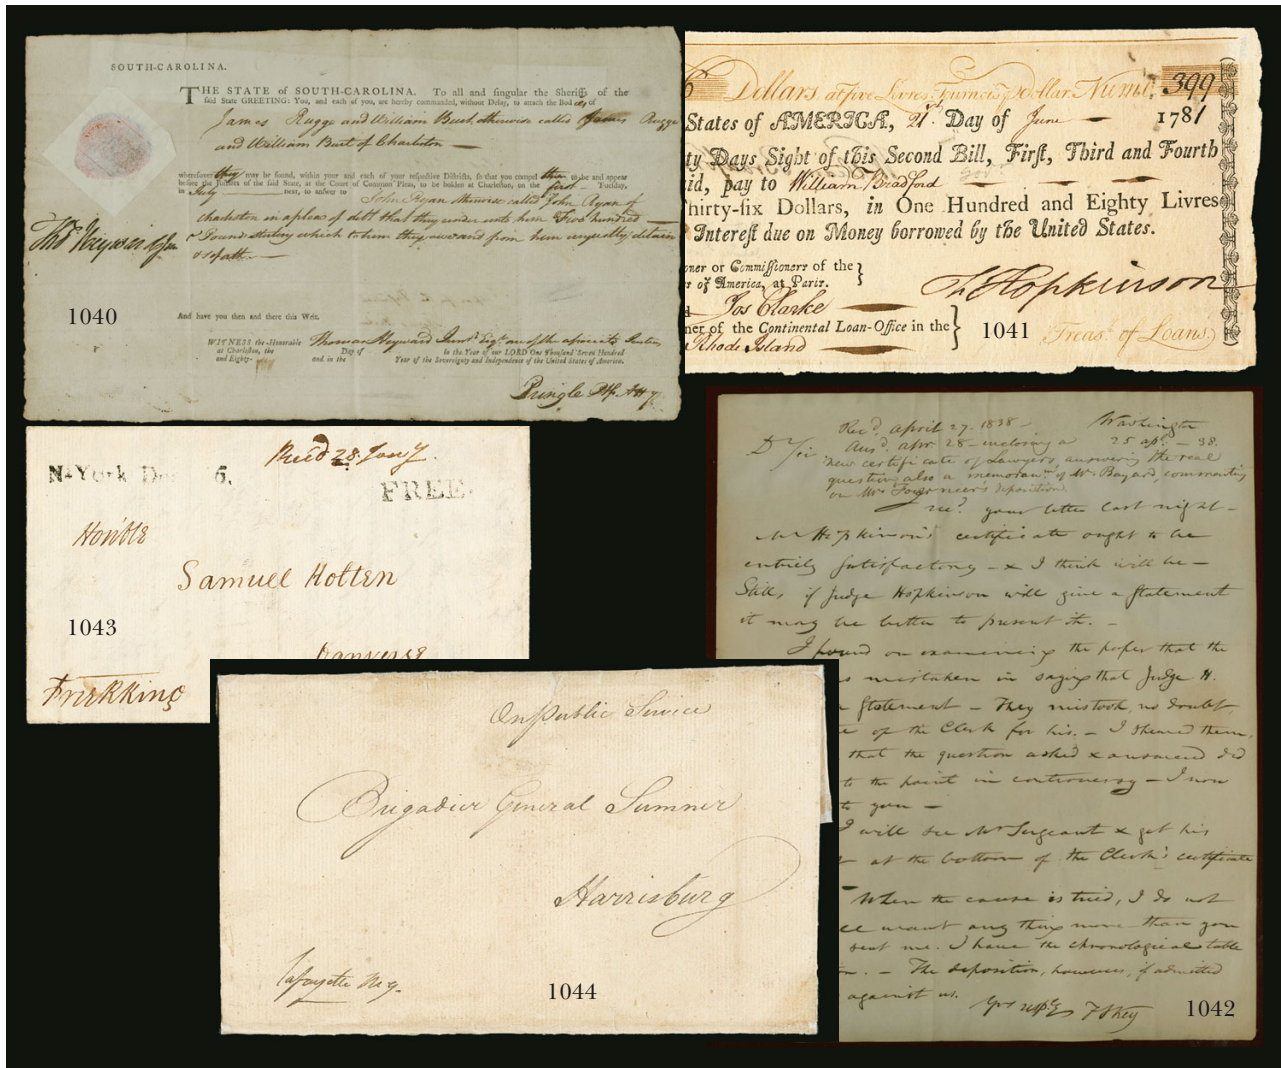 SOUTH-CAROLINA.
THE STATE of SOUTH-CAROLINA. To all and singular the Sheriffs of the
said State GREETING: You, and each of you, are hereby commanded, without Delay, to attach the Bodies of
James Rugge and William Burt, otherwise called James Rugge
and William Burt of Charleston
wheresoever they may be found, within your and each of your respective Districts, so that you compel them to be and appear
before the Justices of the said State, at the Court of Common Pleas, to be holden at Charleston, on the first Tuesday,
in July next, to answer to John Ryan otherwise called John Ryan of
Charleston in a plea of debt that they render unto him Two hundred
Pound sterling which to him they owe and from him unjustly detain
Thos Heyward Jun
And have you then and there this Writ.
WITNESS the Honorable Thomas Heyward Junr Esqr one of the associate Justices
at Charleston, the Day of in the Year of our LORD One Thousand Seven Hundred
and Eighty- and in the Year of the Sovereignty and Independence of the United States of America.
Pringle Atty
1040
Dollars, at five Livres Turnois dollar Numb. 399
States of AMERICA, 21st Day of June 1781
ty Days Sight of this Second Bill, First, Third and Fourth
id, pay to William Bradford
Thirty-six Dollars, in One Hundred and Eighty Livres
Interest due on Money borrowed by the United States.
oner or Commissioners of the
s of America, at Paris.
Jos Clarke
ner of the Continental Loan-Office in the
Rhode Island
Hopkinson
Treasr of Loans
1041
N-York De 6.
Recd 28 Jany.
FREE.
Honble
Samuel Holten
Danverse
Fr RKing
1043
Recd April 27. 1838 - Washington
Ansd apr 28 - inclosing a 25 apl - 38.
D Sir
new certificate of Lawyers answering the real
question also a memoran of Mr Bayard, commenting
on Mr deposition
recd your letter last night -
Mr Hopkinson's certificate ought to be
entirely satisfactory - & I think will be -
Still, if Judge Hopkinson will give a statement
it may be better to present it. -
I found on examining the paper that the
s mistaken in saying that Judge H.
statement - They mistook, no doubt,
of the Clerk for his. - I shewed them,
that the question asked & answered did
to the point in controversy - I now
to you -
I will see Mr Sergeant & get his
at the bottom of the Clerk's certificate
When the cause is tried, I do not
want any thing more than you
sent me. I have the chronological table
- The deposition, however, if admitted
against us.
Yrs respy F S Key
1042
On Public Service
Brigadier General Sumner
Harrisburg
Lafayette M.g.
1044